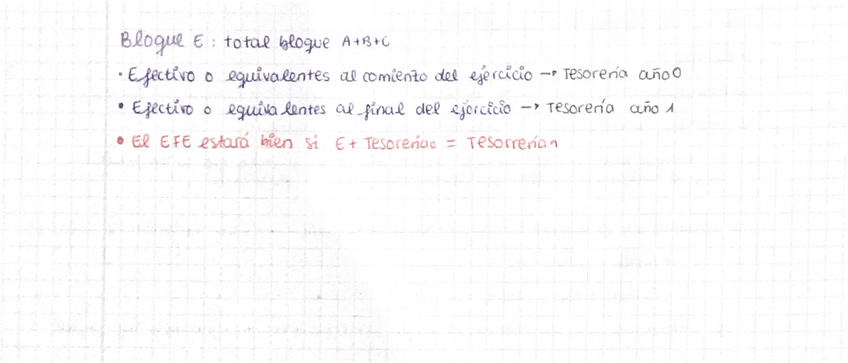 Bloque E: total bloque A+B+C
· Efectivo o equivalentes al comiento del ejercicio → Tesorería año 0
• Efectivo o equivalentes al final del ejercicio → Tesorería año 1
• El EFE estará bien si E + Tesorería0 = Tesorrería1